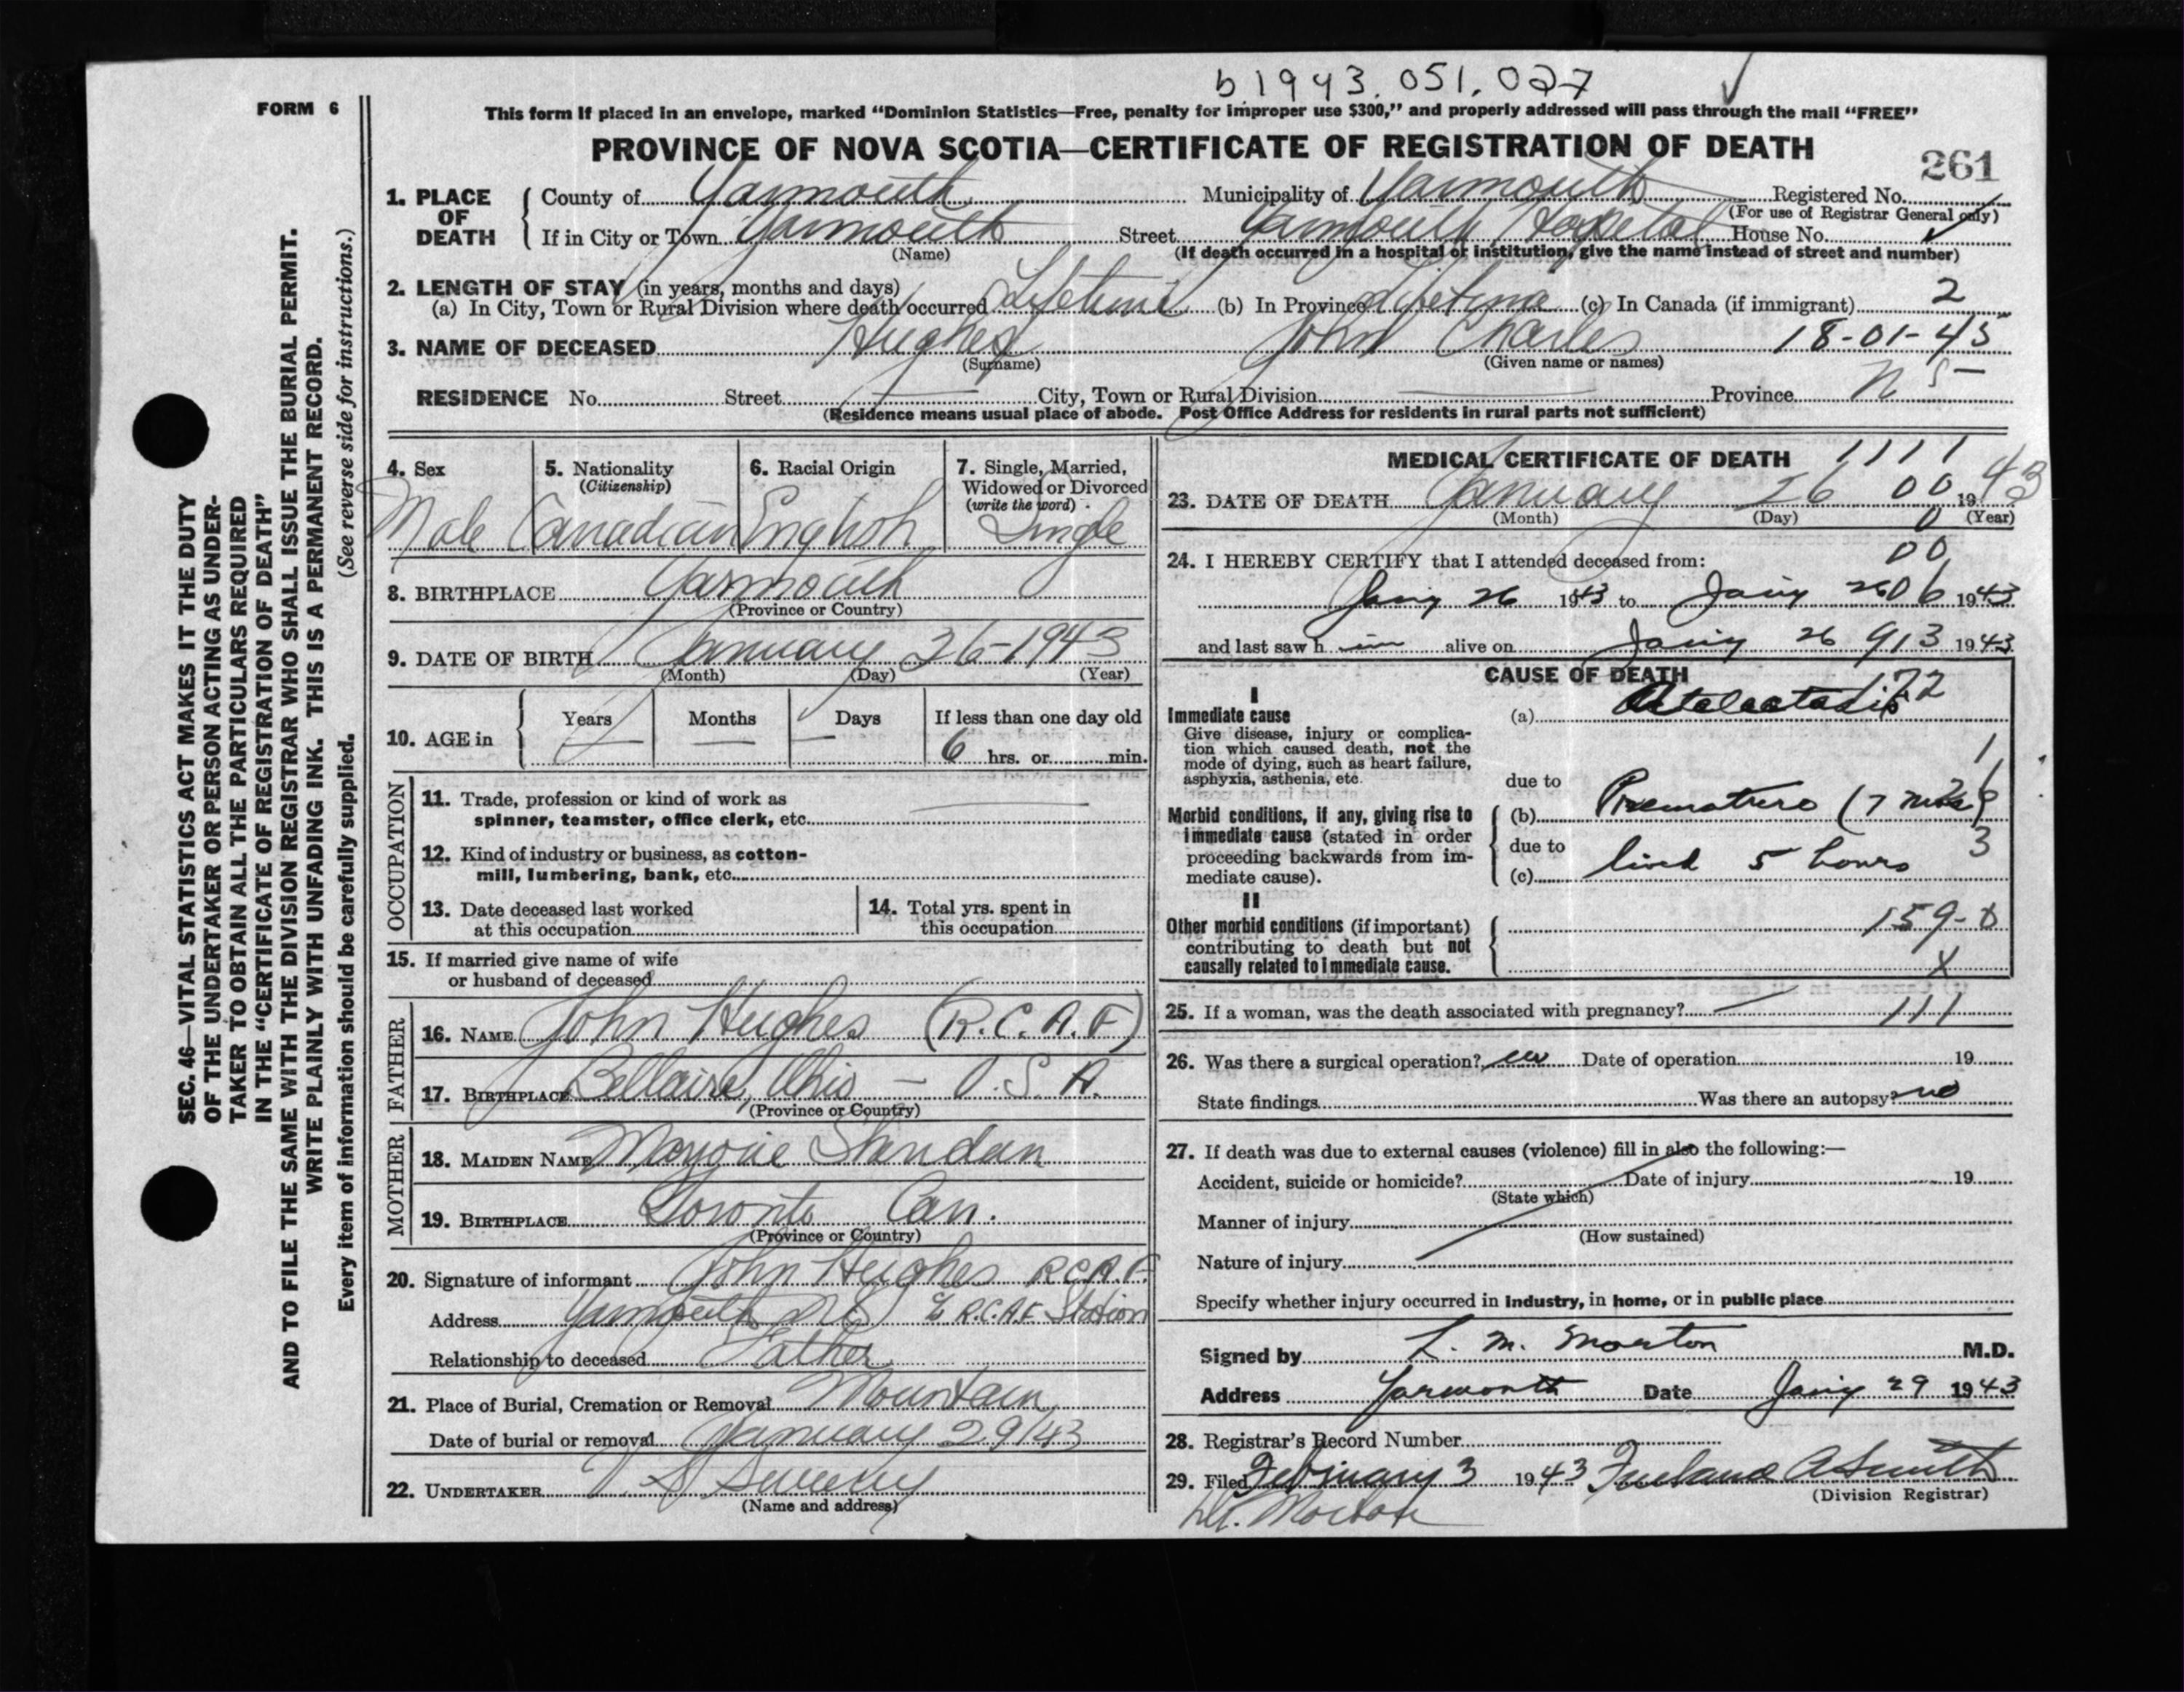 b1943.051.027
FORM 6
This form if placed in an envelope, marked "Dominion Statistics—Free, penalty for improper use $300," and properly addressed will pass through the mail "FREE"
PROVINCE OF NOVA SCOTIA—CERTIFICATE OF REGISTRATION OF DEATH
261
1. PLACE OF DEATH
County of Yarmouth Municipality of Yarmouth Registered No.
(For use of Registrar General only)
If in City or Town Yarmouth Street Yarmouth Hospital House No.
(Name) (If death occurred in a hospital or institution, give the name instead of street and number)
2. LENGTH OF STAY (in years, months and days)
(a) In City, Town or Rural Division where death occurred Lifetime (b) In Province Lifetime (c) In Canada (if immigrant) 2
3. NAME OF DECEASED Hughes John Charles 18-01-45
(Surname) (Given name or names)
RESIDENCE No. Street — City, Town or Rural Division — Province N S
(Residence means usual place of abode. Post Office Address for residents in rural parts not sufficient)
4. Sex
Male
5. Nationality
(Citizenship)
Canadian
6. Racial Origin
English
7. Single, Married,
Widowed or Divorced
(write the word)
Single
8. BIRTHPLACE Yarmouth
(Province or Country)
9. DATE OF BIRTH January 26-1943
(Month) (Day) (Year)
10. AGE in
Years — Months — Days — If less than one day old
6 hrs. or min.
OCCUPATION
11. Trade, profession or kind of work as
spinner, teamster, office clerk, etc. —
12. Kind of industry or business, as cotton-
mill, lumbering, bank, etc.
13. Date deceased last worked
at this occupation
14. Total yrs. spent in
this occupation
15. If married give name of wife
or husband of deceased
FATHER
16. NAME John Hughes (R.C.A.F)
17. BIRTHPLACE Bellaire, Ohio — U.S.A.
(Province or Country)
MOTHER
18. MAIDEN NAME Marjorie
19. BIRTHPLACE Toronto Can.
(Province or Country)
20. Signature of informant John Hughes R.C.A.F.
Address Yarmouth N S % R.C.A.F Station
Relationship to deceased Father
21. Place of Burial, Cremation or Removal Mountain
Date of burial or removal January 29/43
22. UNDERTAKER V S Sweeny
(Name and address)
MEDICAL CERTIFICATE OF DEATH 1111
23. DATE OF DEATH January 26 00 1943
(Month) (Day) 0 (Year)
24. I HEREBY CERTIFY that I attended deceased from: 00
Jany 26 1943 to Jany 26 06 1943
and last saw him alive on Jany 26 913 1943
CAUSE OF DEATH
I
Immediate cause
Give disease, injury or complica-
tion which caused death, not the
mode of dying, such as heart failure,
asphyxia, asthenia, etc.
(a) Atelectasis 172
1
due to
Morbid conditions, if any, giving rise to
immediate cause (stated in order
proceeding backwards from im-
mediate cause).
(b) Premature (7 mos)
due to
3
(c) lived 5 hours
II
Other morbid conditions (if important)
contributing to death but not
causally related to immediate cause.
159-0
X
25. If a woman, was the death associated with pregnancy? — 111
26. Was there a surgical operation? no Date of operation 19
State findings Was there an autopsy? no
27. If death was due to external causes (violence) fill in also the following:—
Accident, suicide or homicide? Date of injury 19
(State which)
Manner of injury
(How sustained)
Nature of injury
Specify whether injury occurred in industry, in home, or in public place
Signed by L. M. Morton M.D.
Address Yarmouth Date Jany 29 1943
28. Registrar's Record Number
29. Filed February 3 1943 A Smith
(Division Registrar)
Morton
SEC. 46—VITAL STATISTICS ACT MAKES IT THE DUTY
OF THE UNDERTAKER OR PERSON ACTING AS UNDER-
TAKER TO OBTAIN ALL THE PARTICULARS REQUIRED
IN THE "CERTIFICATE OF REGISTRATION OF DEATH"
AND TO FILE THE SAME WITH THE DIVISION REGISTRAR WHO SHALL ISSUE THE BURIAL PERMIT.
WRITE PLAINLY WITH UNFADING INK. THIS IS A PERMANENT RECORD.
Every item of information should be carefully supplied. (See reverse side for instructions.)